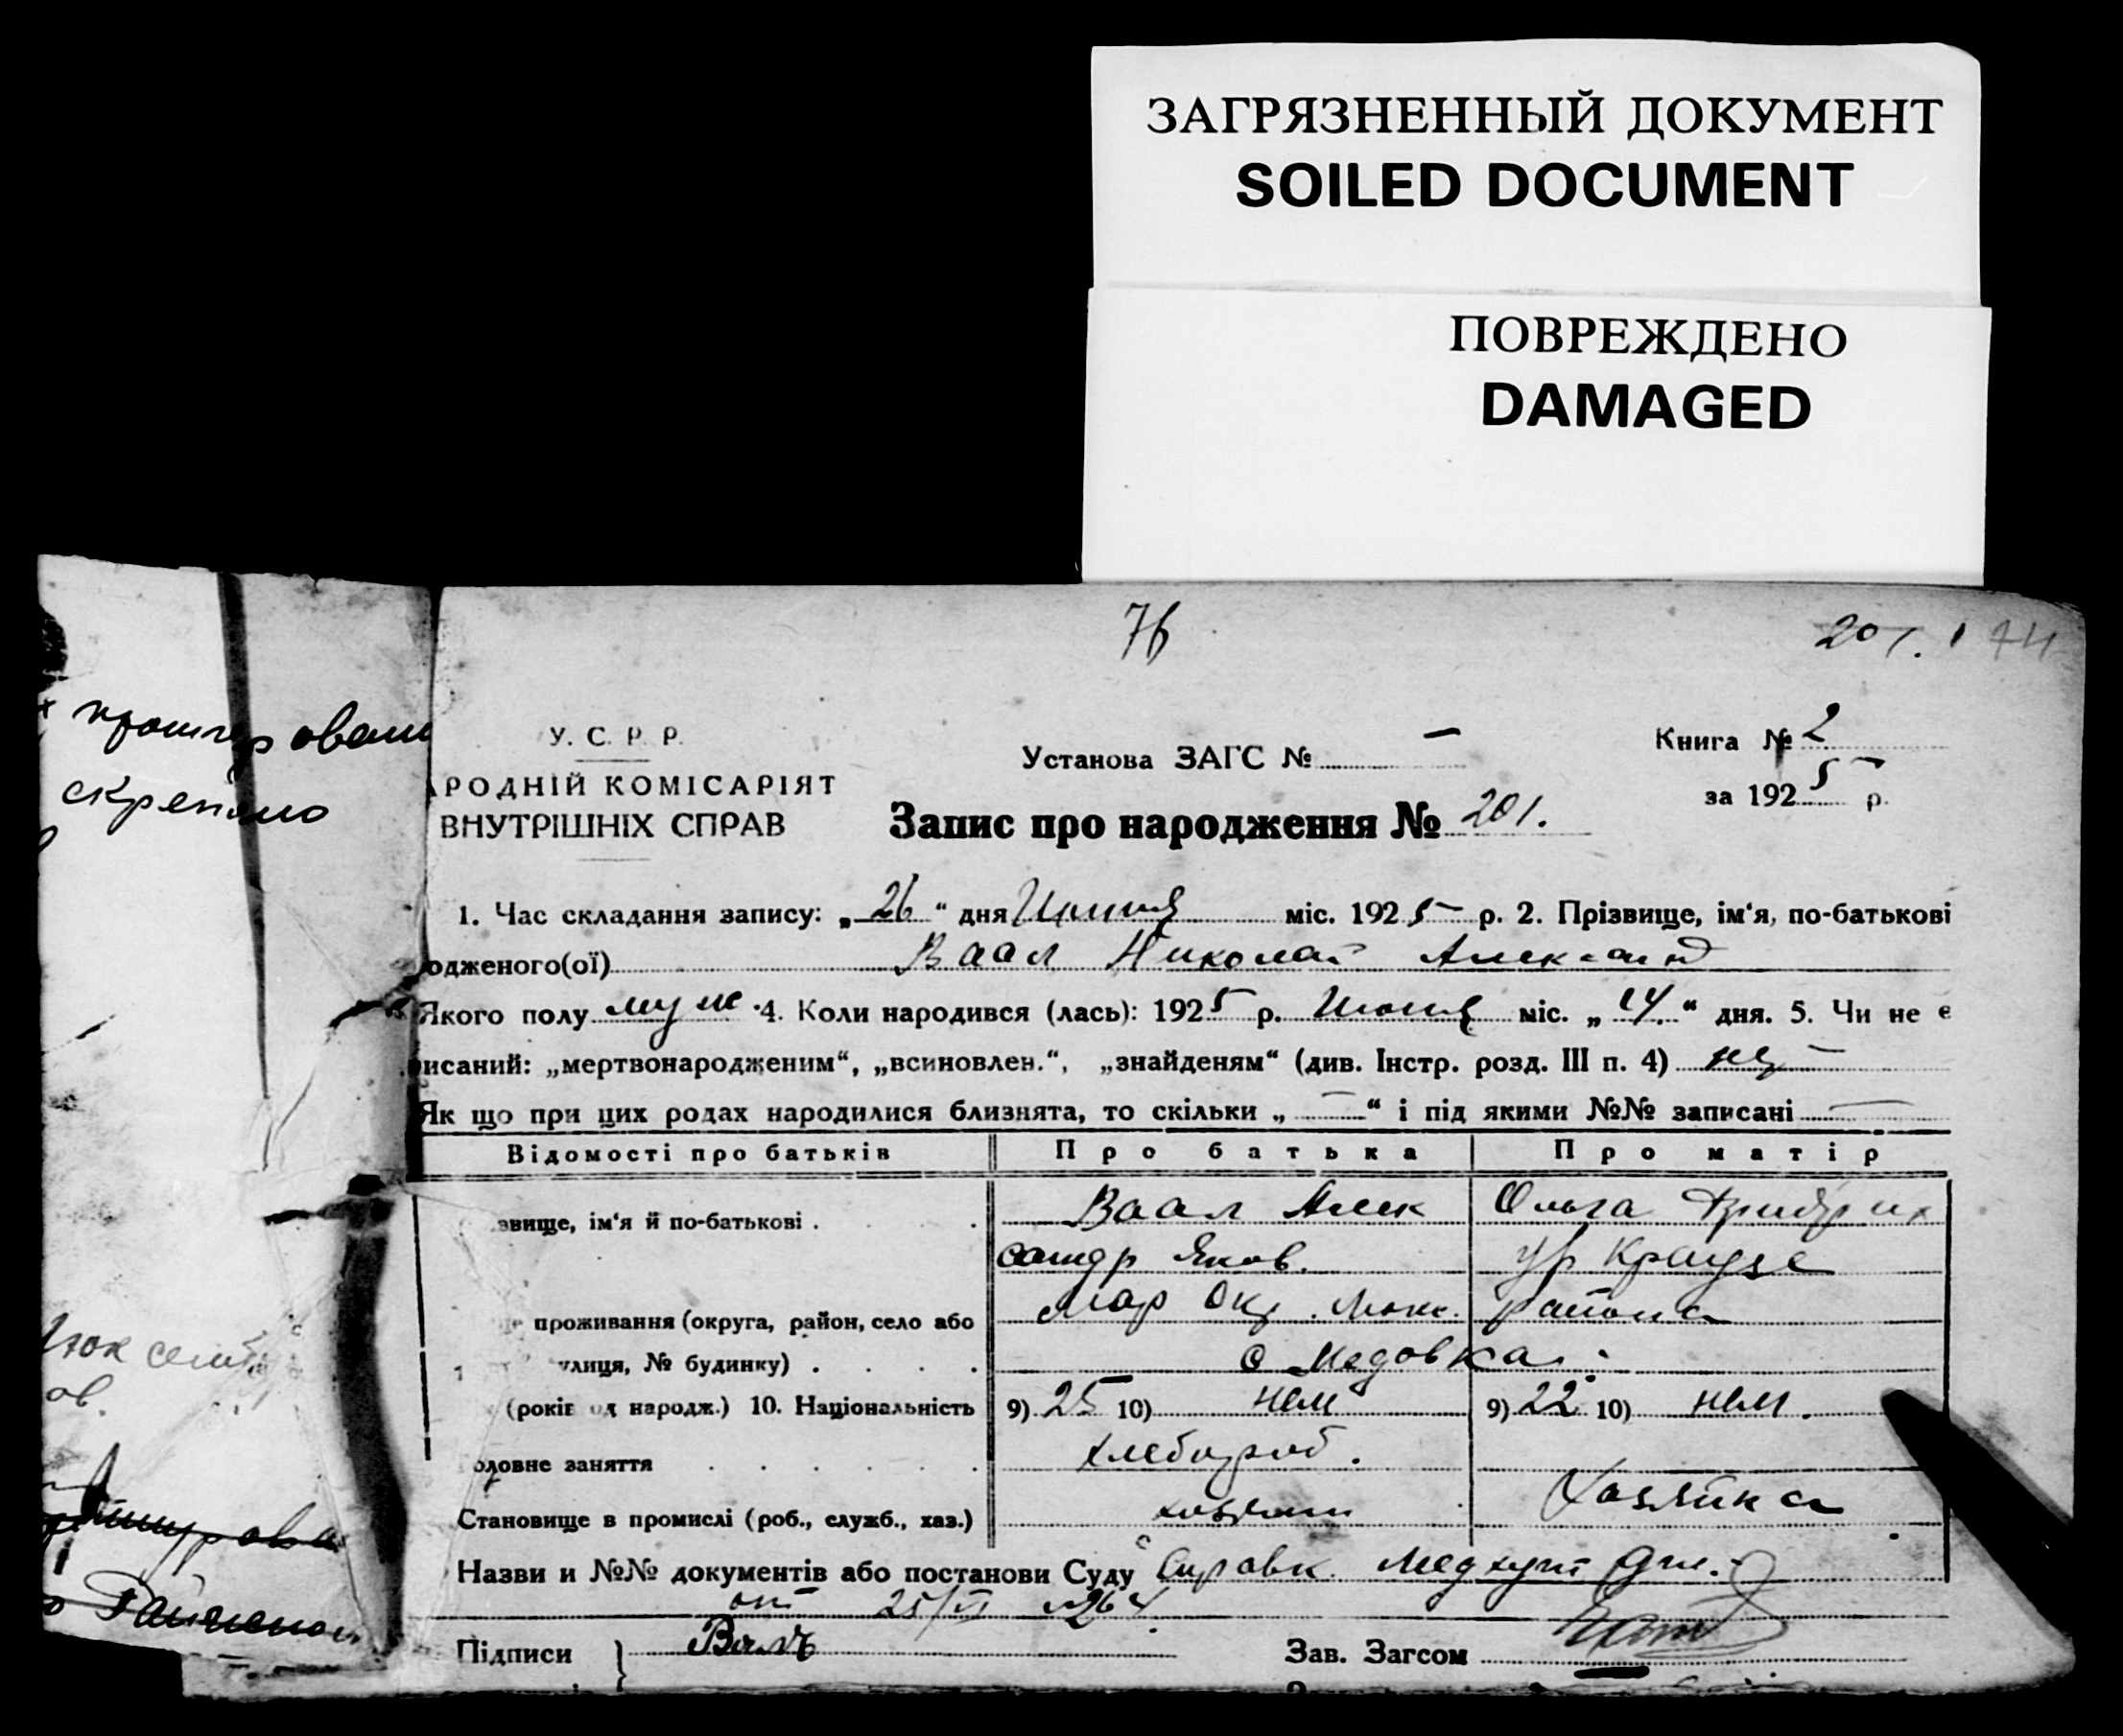 ЗАГРЯЗНЕННЫЙ ДОКУМЕНТ
SOILED DOCUMENT
ПОВРЕЖДЕНО
DAMAGED
76
201.
У. С. Р. Р.
РОДНІЙ КОМІСАРІЯТ
ВНУТРІШНІХ СПРАВ
Установа ЗАГС № —
Книга № 2
за 1925 р.
Запис про народження № 201.
1. Час складання запису: „26“ дня Июня міс. 1925 р. 2. Прізвище, ім'я, по-батькові
одженого(ої) Ваал Николай Александ
Якого полу муж 4. Коли народився (лась): 1925 р. Июня міс. „14.“ дня. 5. Чи не є
исаний: „мертвонародженим“, „всиновлен.“, „знайденям“ (див. Інстр. розд. III п. 4)
Як що при цих родах народилися близнята, то скільки „—“ і під якими №№ записані —
Відомості про батьків Про батька Про матір
звище, ім'я й по-батькові . Ваал Алек Ольга
сандр Яков. ур Краузе
проживання (округа, район, село або Мар Окр. района
улиця, № будинку) . . . . с Медовка
(років од народж.) 10. Національність 9) 25 10) нем 9) 22 10) нем.
оловне заняття . . . . . . хлебороб.
Становище в промислі (роб., служб., хаз.) хозяин Хозяйка
Назви и №№ документів або постанови Суду Справк
от 25/VI №264.
Підписи } Зав. Загсом
скреплено